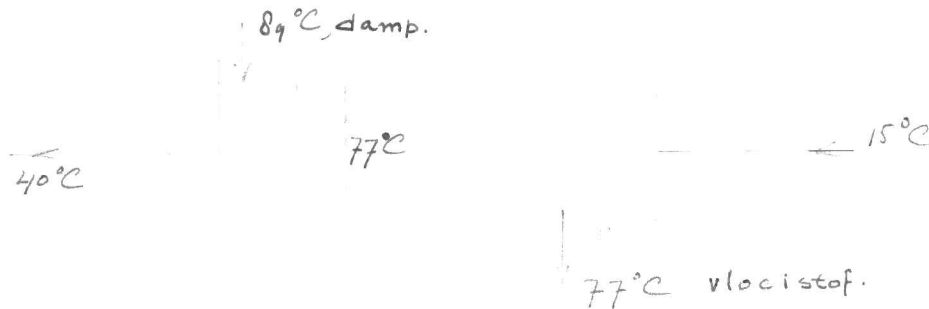 89°C, damp.
15°C
77°C
40°C
77°C vlocistof.